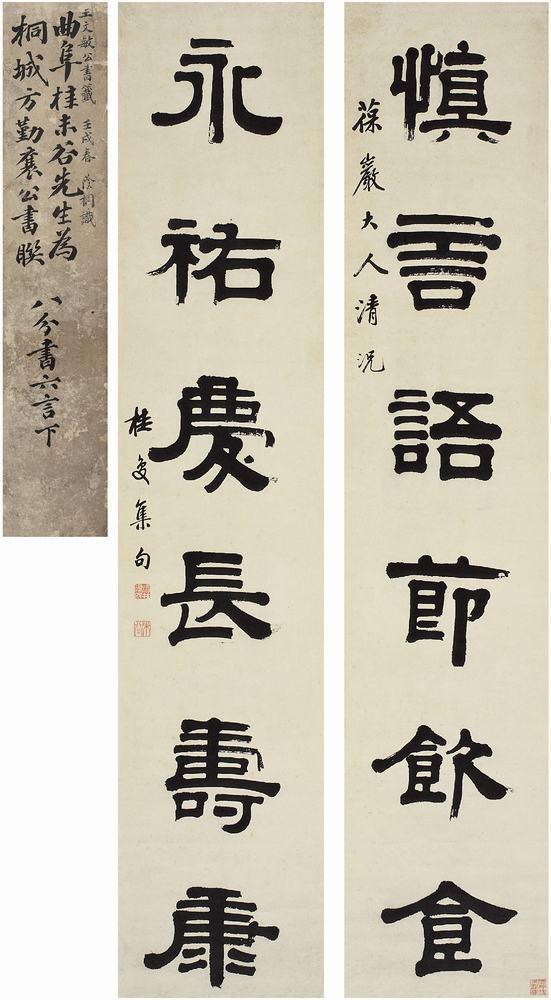 慎言語節飲食
葆巖大人清況
永祐慶長壽康
桂馥集句
王文敏公書籤 壬戌春 蔭桐識
曲阜桂未谷先生為
桐城方勤襄公書联
八分書六言下